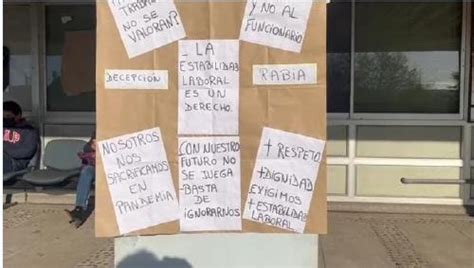 TRABAJO
NO SE
VALORAN?
Y NO AL
FUNCIONARIO
- LA
ESTABILIDAD
LABORAL
ES UN
DERECHO.
DECEPCIÓN
RABIA
NOSOTROS
NOS
SACRIFICAMOS
EN
PANDEMIA
- CON NUESTRO
FUTURO NO
SE JUEGA
- BASTA
DE
IGNORARNOS
+ RESPETO
+ DIGNIDAD
EXIGIMOS
+ ESTABILIDAD
LABORAL